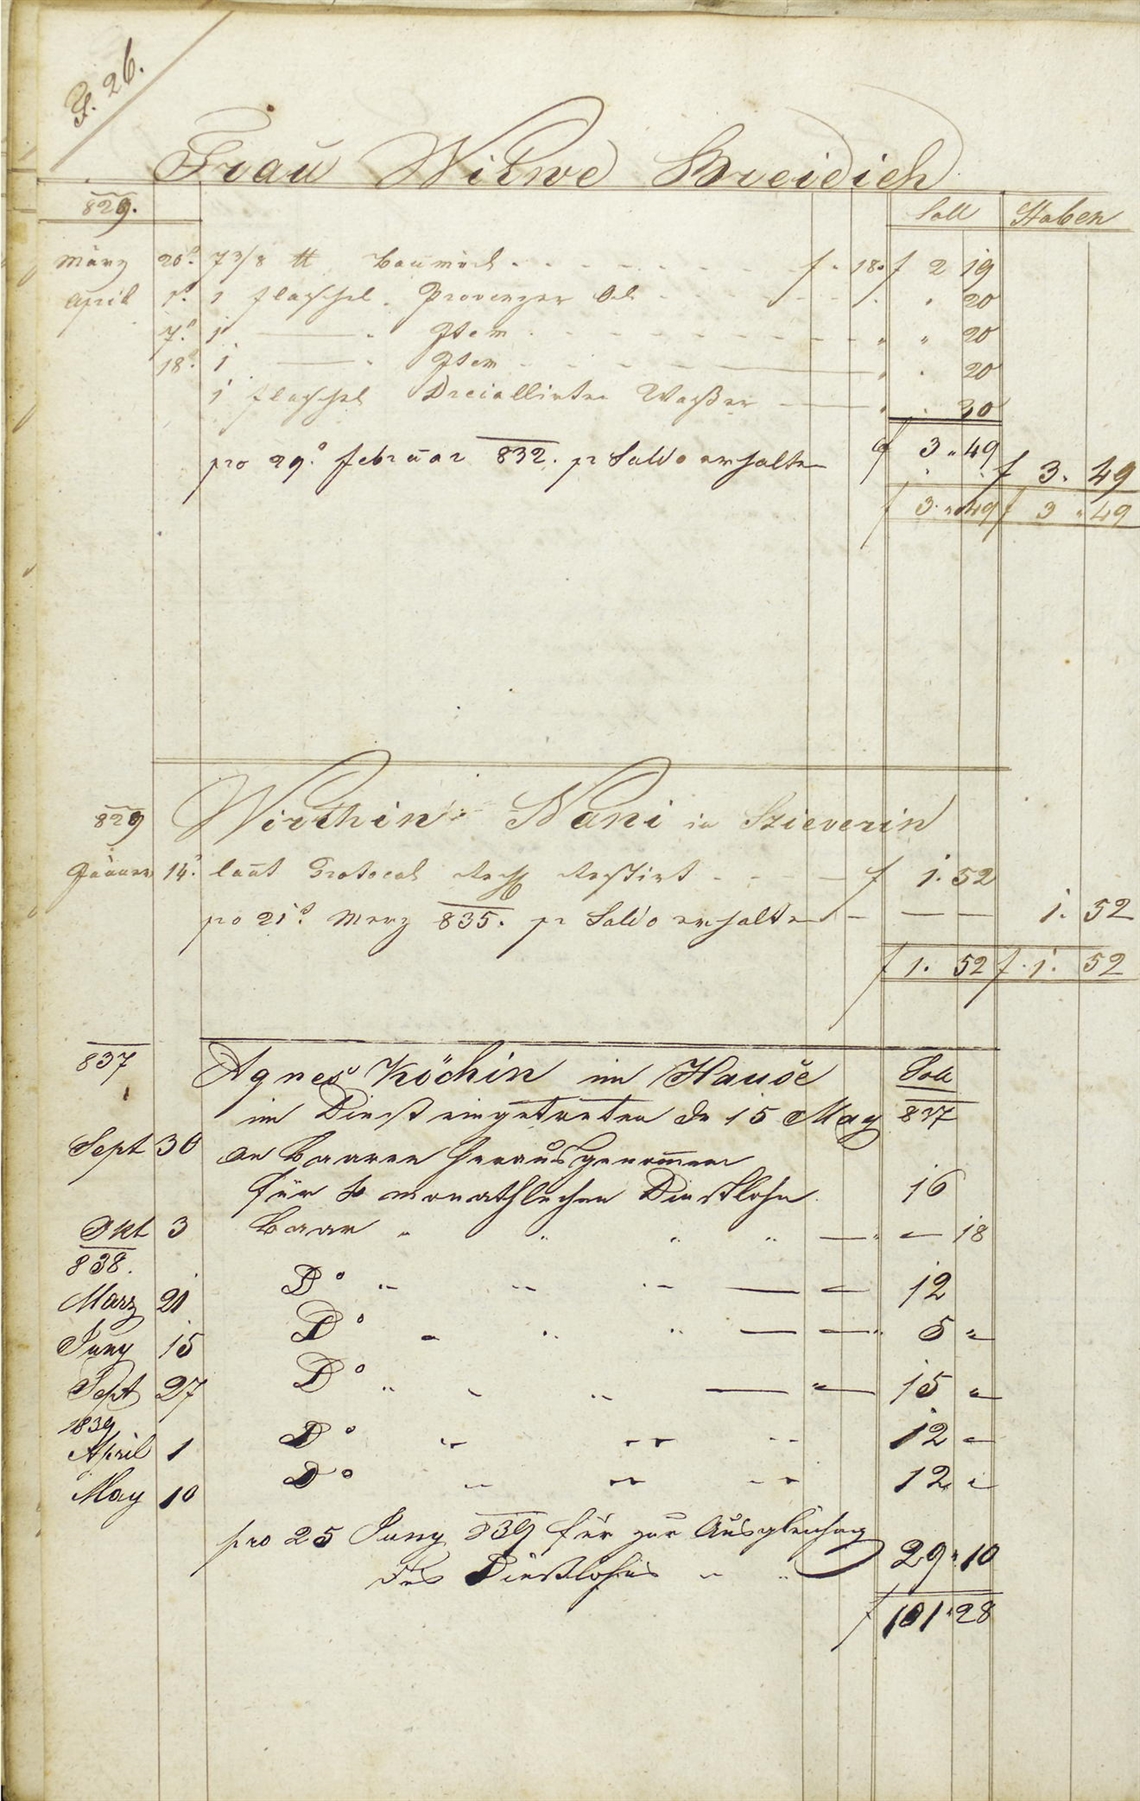 P. 26.
Frau Witwe Breidich
829. Soll Haben
März 20. 7 3/8 ℔ f . 18. f 2 19
April 1. 1 flaschel Provenzer Oel . 20
7. 1 — Item . 20
18. 1 — Item . 20
1 flaschel Waßer . 30
f 3. 49
pro 29. februar 832. pr Saldo erhalten f 3. 49
f 3. 49 f 3. 49
829 Wirthin Nani in Szieverin
Jänner 14. laut Protocol Restirt f 1. 52
pro 21. Merz 835. pr Saldo erhalten — — 1. 52
f 1. 52 f. 1. 52
837 Agnes Köchin im Hause Soll
im Dienst eingetreten d 15 May 837
Sept 30 an Baaren herausgenommen
für 4 monathlichen Dienstlohn 16
Okt 3 Baar " " " " — — 18
838.
März 21 Do " " " — — 12
Juny 15 Do " " " — — 5 "
Sept 27 Do " " " — — 15 "
1839
April 1 Do " " " 12 "
May 10 Do " " " 12 "
pro 25 Juny 839 für zur Ausgleichung
des Dienstlohns " " 29 " 10
f 101 " 28